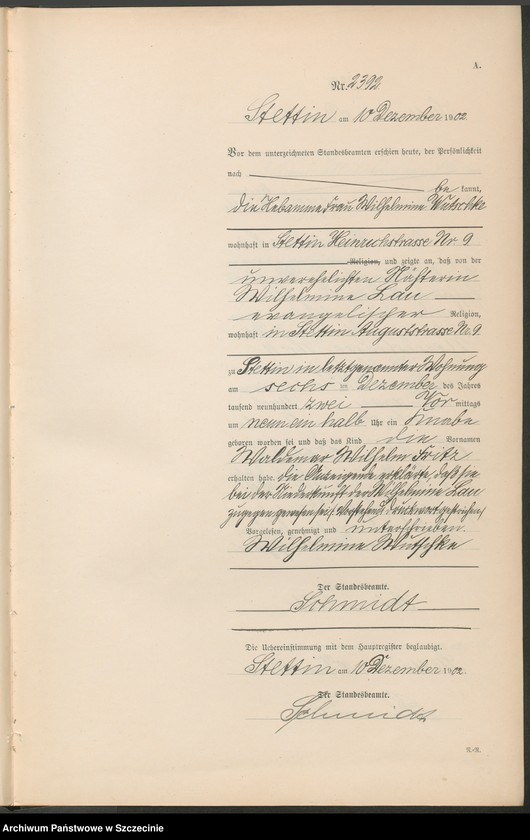 A.
Nr. 2392
Stettin am 10 Dezember 1902
Vor dem unterzeichneten Standesbeamten erschien heute, der Persönlichkeit
nach
be kannt,
die Hebamme Frau Wilhelmine Wutschke
wohnhaft in Stettin Heinrichstrasse Nr. 9
Religion, und zeigte an, daß von der
unverehelichten Nähterin
Wilhelmine Lau
evangelischer Religion,
wohnhaft in Stettin Auguststrasse Nr. 9
zu Stettin in letztgenannter Wohnung
am sechs ten Dezember des Jahres
tausend neunhundert zwei Vor mittags
um neun ein halb Uhr ein Knabe
geboren worden sei und daß das Kind die Vornamen
Waldemar Wilhelm Fritz
erhalten habe. Die Anzeigende erklärte, daß sie
bei der Niederkunft der Wilhelmine Lau
zugegen gewesen sei. Vorstehend Druckwort gestrichen
Vorgelesen, genehmigt und unterschrieben.
Wilhelmine Wutschke
Der Standesbeamte.
Schmidt
Die Uebereinstimmung mit dem Hauptregister beglaubigt.
Stettin am 10 Dezember 1902.
Der Standesbeamte.
Schmidt
Archiwum Państwowe w Szczecinie